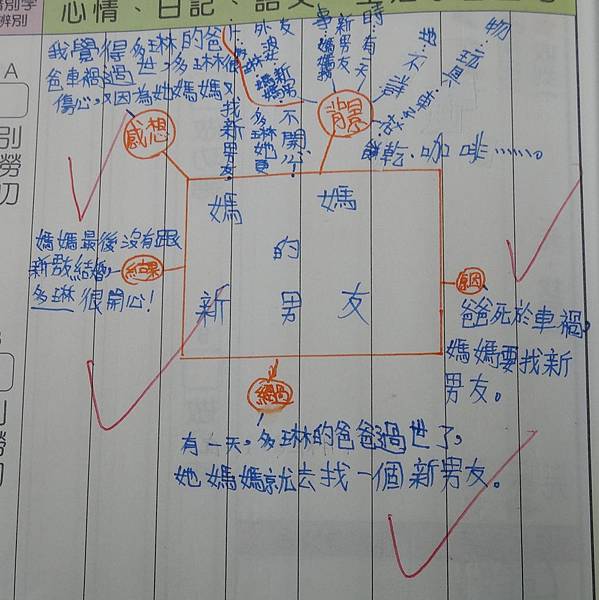 心情、日記、語文
我覺得多琳的爸
爸車禍過世,多琳很
傷心,又因為她媽媽又
找新男友。
感想
外婆
多琳她更
不開心!
背景
時:有一天
地:不詳
物:玩具
餅乾.咖啡……。
媽媽
的
新男友
媽媽最後沒有跟
新歡結婚
多琳很開心!
結果
原因
爸爸死於車禍,
媽媽要找新
男友。
經過
有一天,多琳的爸爸過世了,
她媽媽就去找一個新男友。